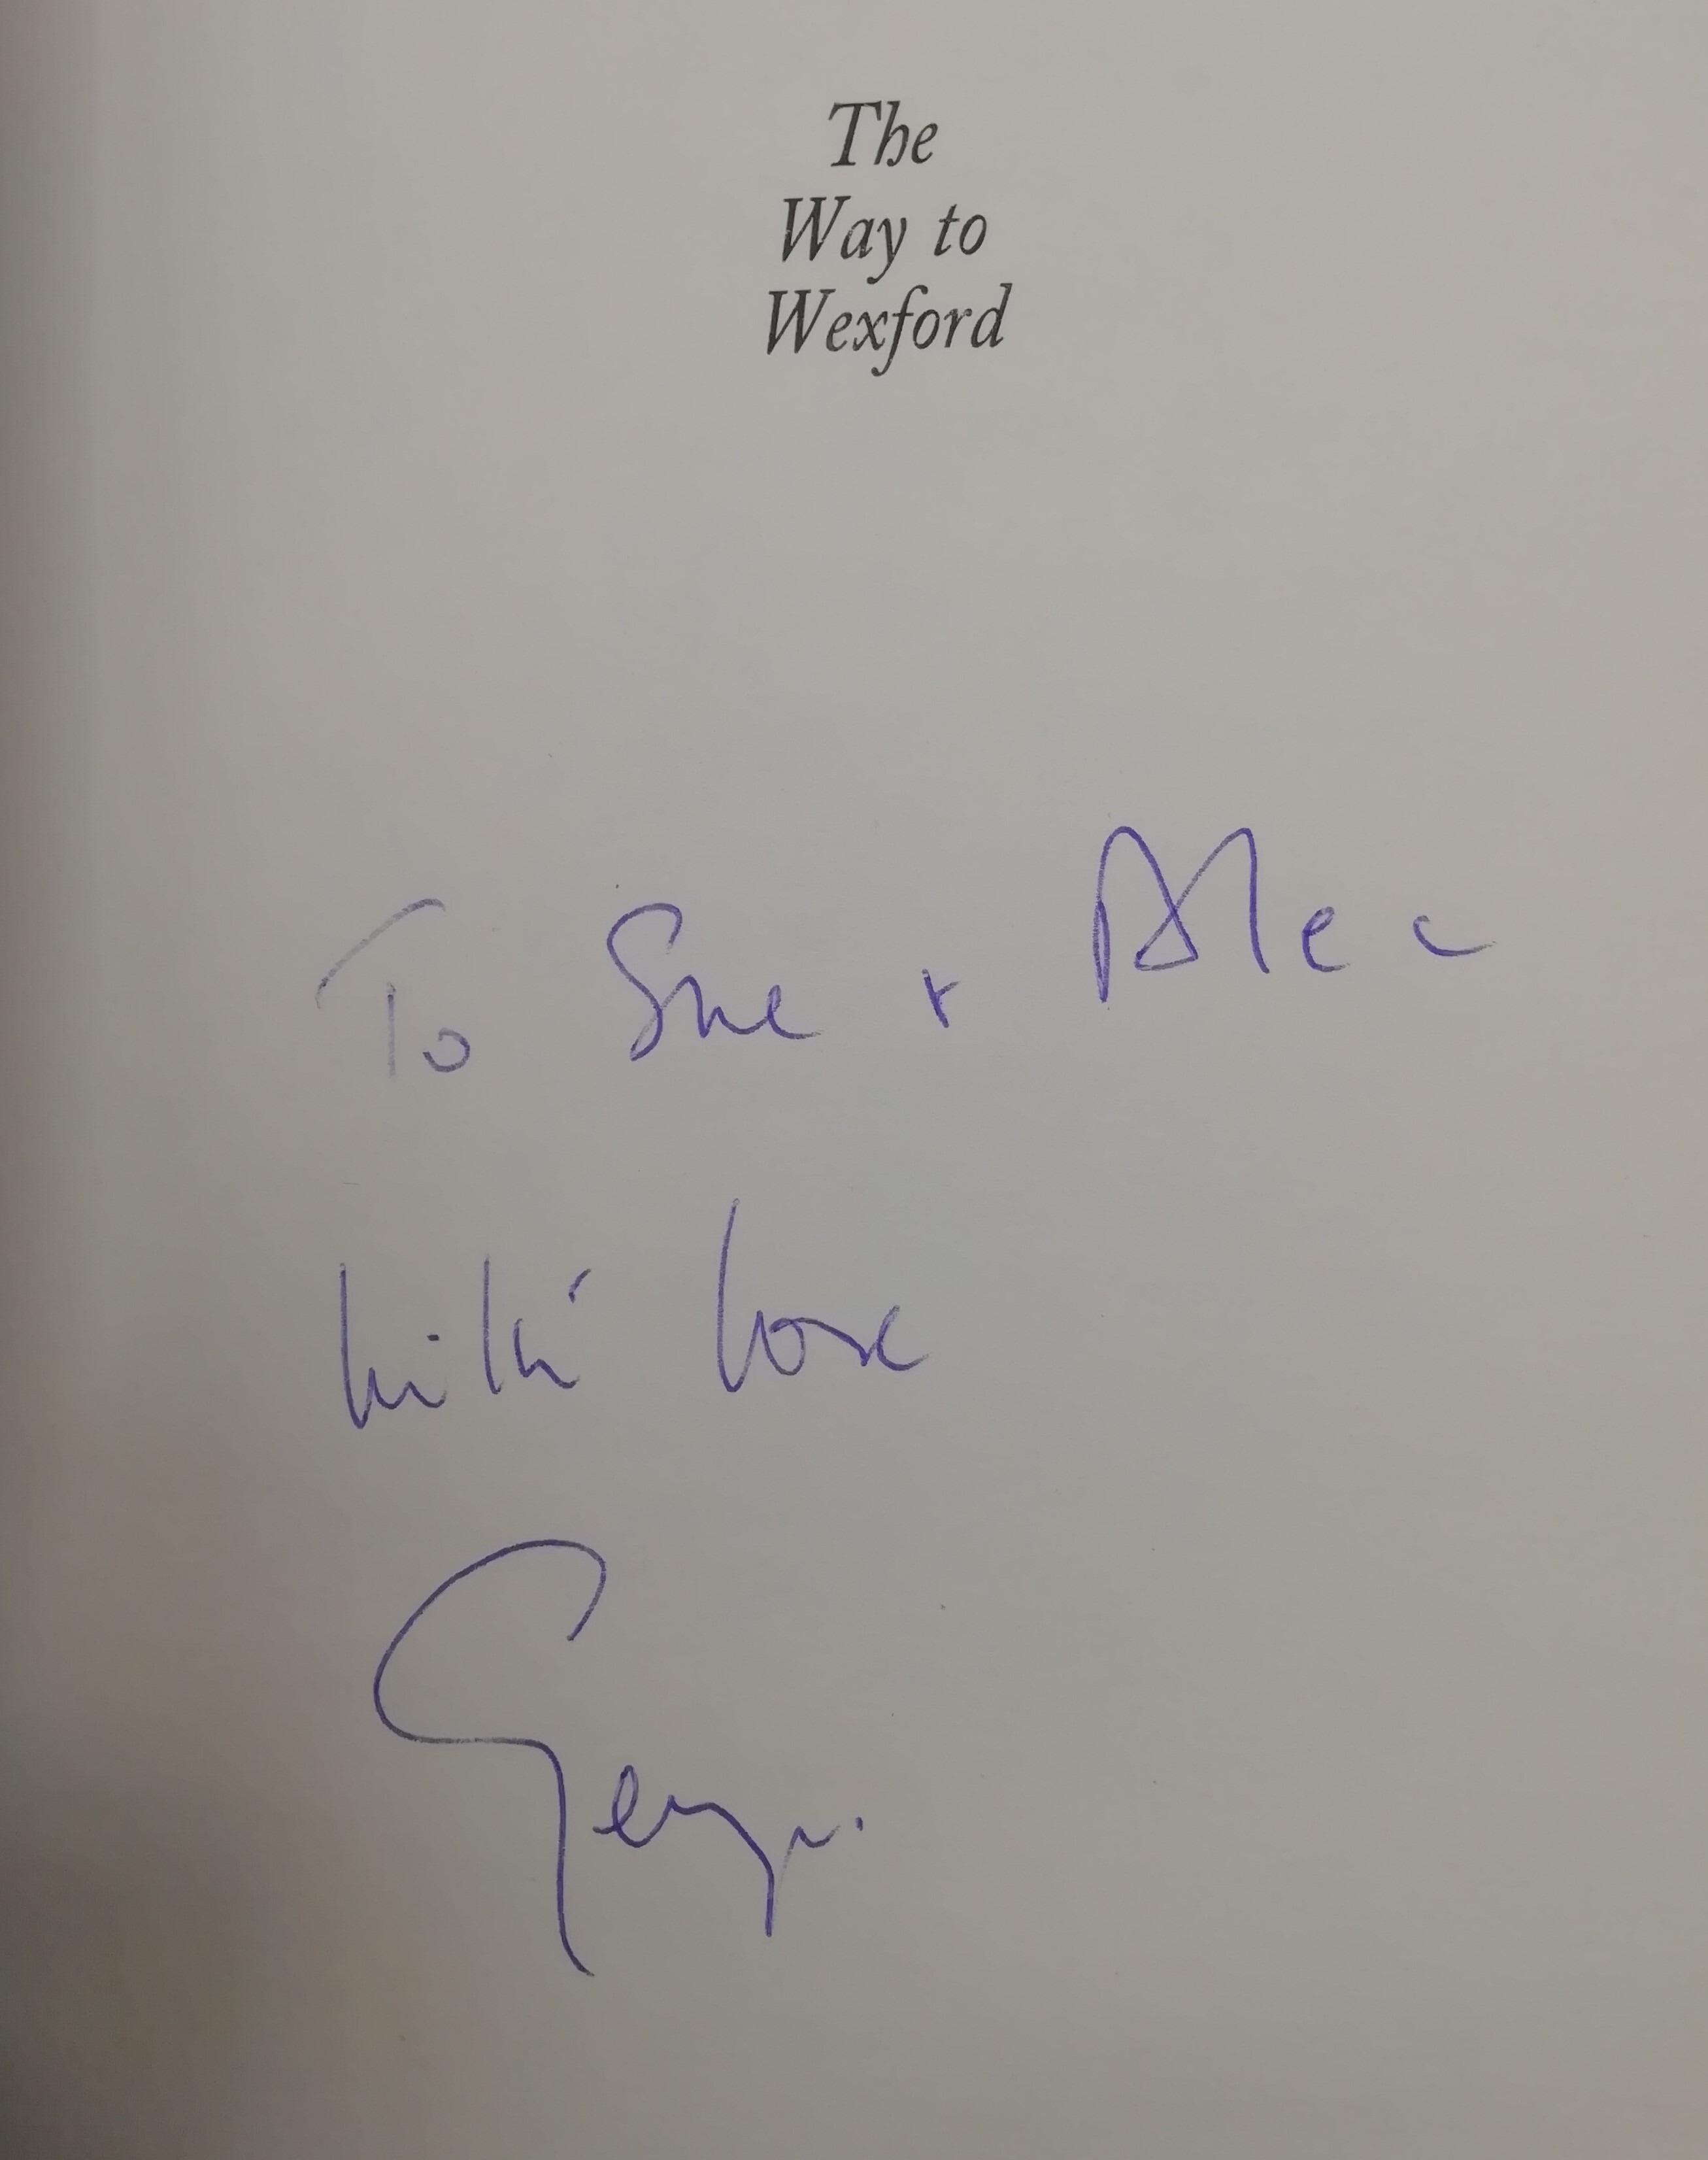 The
Way to
Wexford
To Sue + Alec
with love